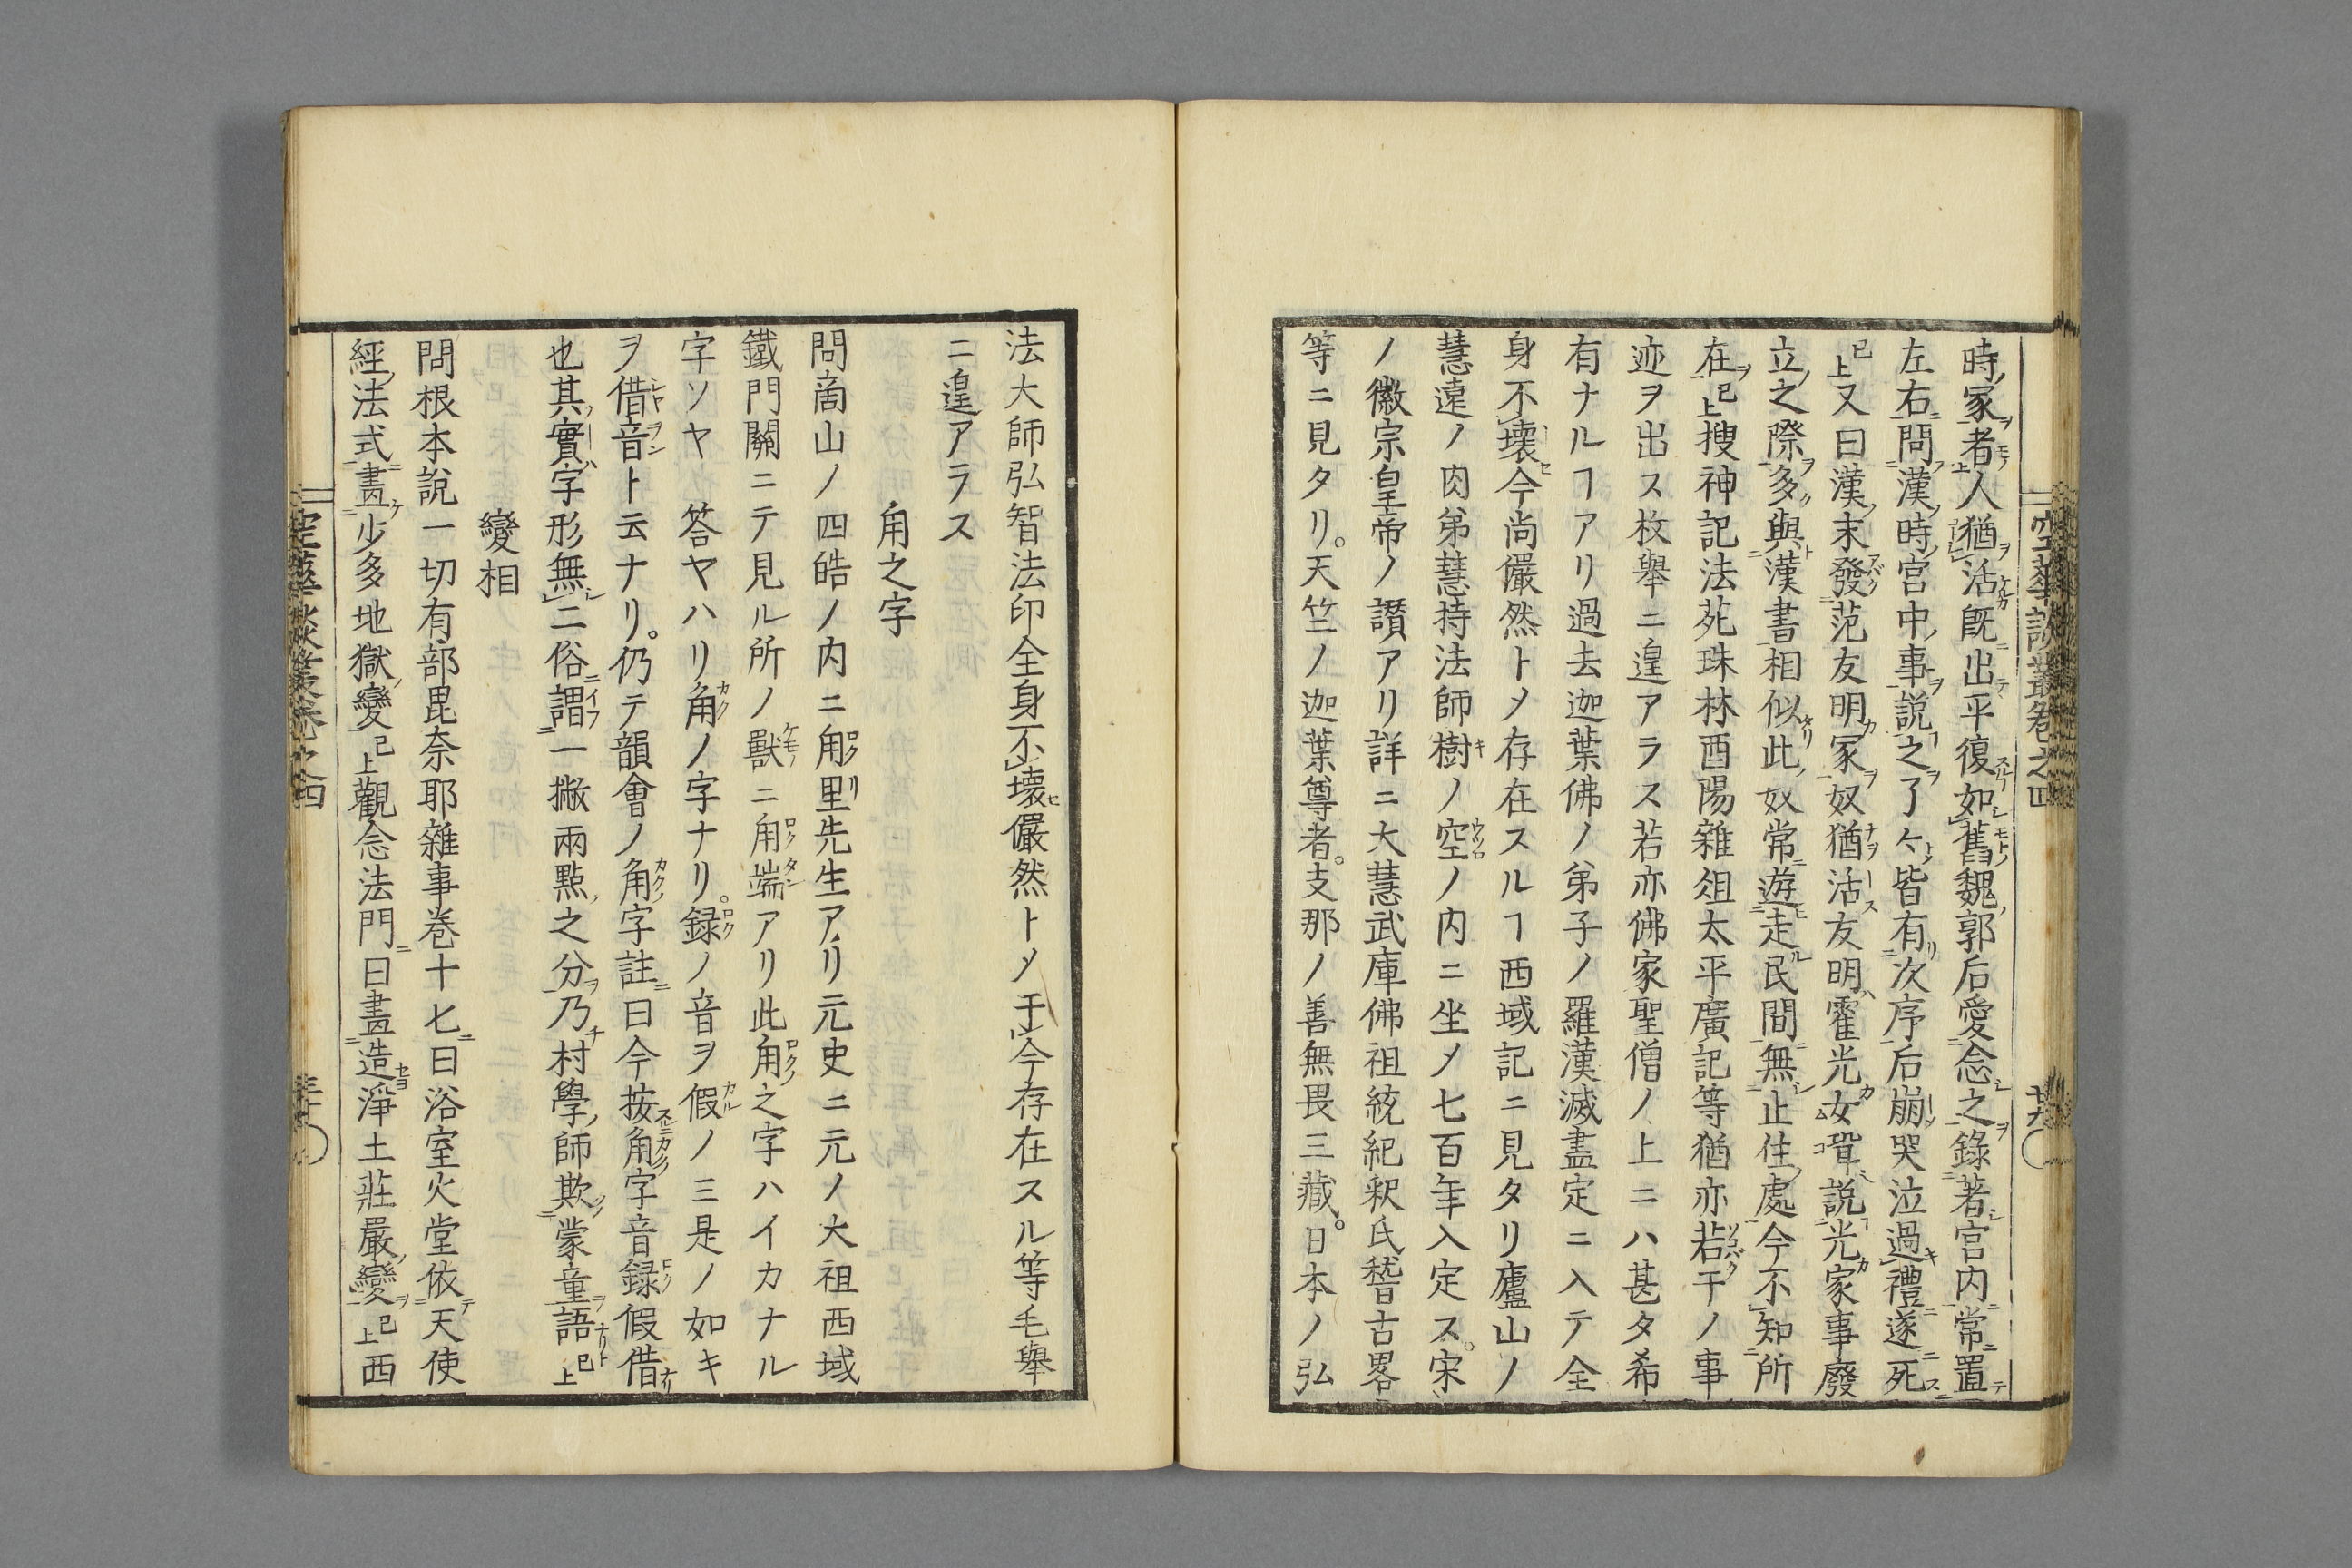 時冢者人猶活既出平復如舊魏郭后愛念之錄著宮内常置
左右問漢時宮中事說之了了皆有次序后崩哭泣過禮遂死
已上又曰漢末發范友明冢奴猶活友明霍光女聟說光家事廢
立之際多與漢書相似此奴常遊走民間無止住處今不知所
在已上搜神記法苑珠林酉陽雜俎太平廣記等猶亦若干ノ事
迹ヲ出ス枚舉ニ遑アラス若亦佛家聖僧ノ上ニハ甚タ希
有ナルヿアリ過去迦葉佛ノ弟子ノ羅漢滅盡定ニ入テ全
身不壞今尚儼然トメ存在スルヿ西域記ニ見タリ廬山ノ
慧遠ノ肉弟慧持法師樹ノ空ノ内ニ坐メ七百年入定ス。宋
ノ徽宗皇帝ノ讚アリ詳ニ大慧武庫佛祖統紀釈氏稽古畧
等ニ見タリ。天竺ノ迦葉尊者。支那ノ善無畏三藏。日本ノ弘
空華談叢卷之四 廿六
法大師弘智法印全身不壞儼然トメ于今存在スル等毛舉
ニ遑アラス
角之字
問啇山ノ四皓ノ内ニ角里先生アリ元史ニ元ノ大祖西域
鐵門關ニテ見ル所ノ獸ニ角端アリ此角之字ハイカナル
字ソヤ 答ヤハリ角ノ字ナリ。録ノ音ヲ假ノ三是ノ如キ
ヲ借音ト云ナリ。仍テ韻會ノ角字註曰今按角字音録假借
也其實字形無二俗謂一撇兩點之分乃村學師欺蒙童語已上
變相
問根本說一切有部毘奈耶雜事卷十七曰浴室火堂依天使
經法式畫少多地獄變已上觀念法門曰畫造淨土莊嚴變已上西
空華談叢卷之四